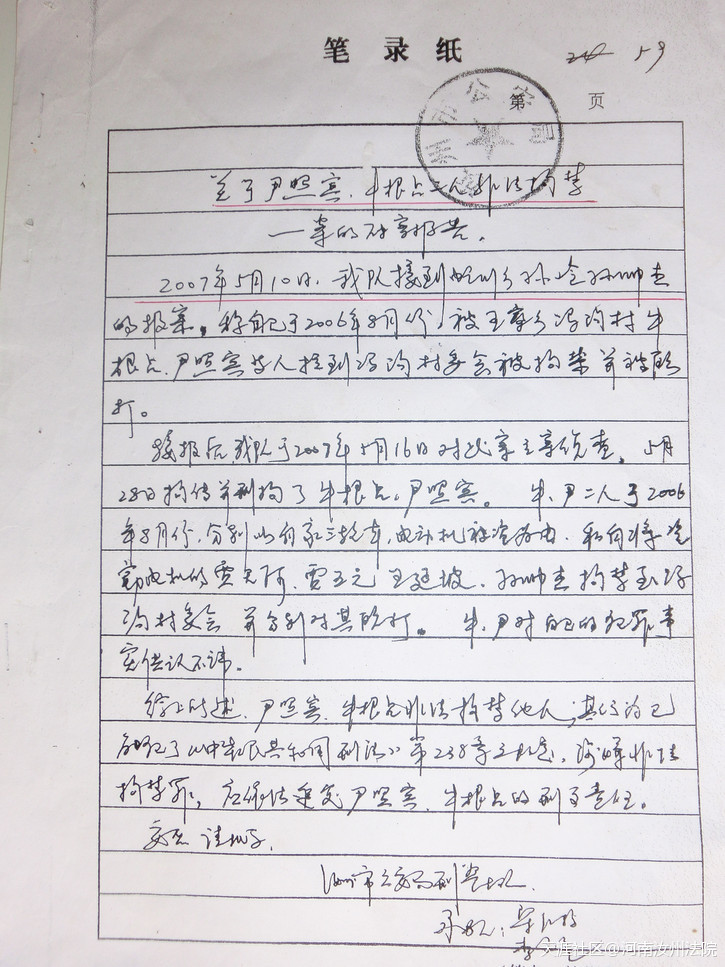 笔录纸
59
第 页
州市公安局
关于尹照宾、牛根占二人非法拘禁
一案的破案报告。
2007年5月10日，我队接到 孙帅杰
的报案。称自己于2006年8月份，被王寨乡冯沟村牛
根占、尹照宾等人拉到冯沟村委会被拘禁并被殴
打。
接报后我队于2007年5月16日对此案立案侦查。5月
28日拘传并刑拘了牛根占、尹照宾。牛、尹二人于2006
年8月份，分别以自家三轮车，电动机被盗为由，私自将
电机的贾天河、贾五元、王延坡、孙帅杰拘禁到冯
沟村委会并分别对其殴打。牛、尹对自己的犯罪事
实供认不讳。
综上所述，尹照宾、牛根占非法拘禁他人，其行为已
触犯了《中华人民共和国刑法》第238条之规定，涉嫌非法
拘禁罪，应依法追究尹照宾、牛根占的刑事责任。
妥否 请批示。
汝州市公安局刑警大队
承办人：
文库社区@河南汝州法院